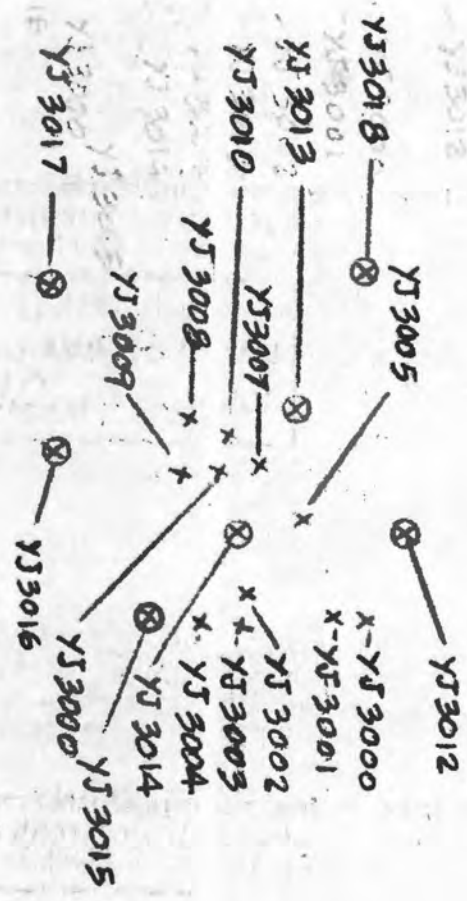 YJ 3018
YJ 3005
YJ 3012
YJ 3013
YJ 3000
YJ 3001
YJ 3010
YJ 3007
YJ 3002
YJ 3003
YJ 3008
YJ 3004
YJ 3014
YJ 3009
YJ 3015
YJ 3000
YJ 3017
YJ 3016